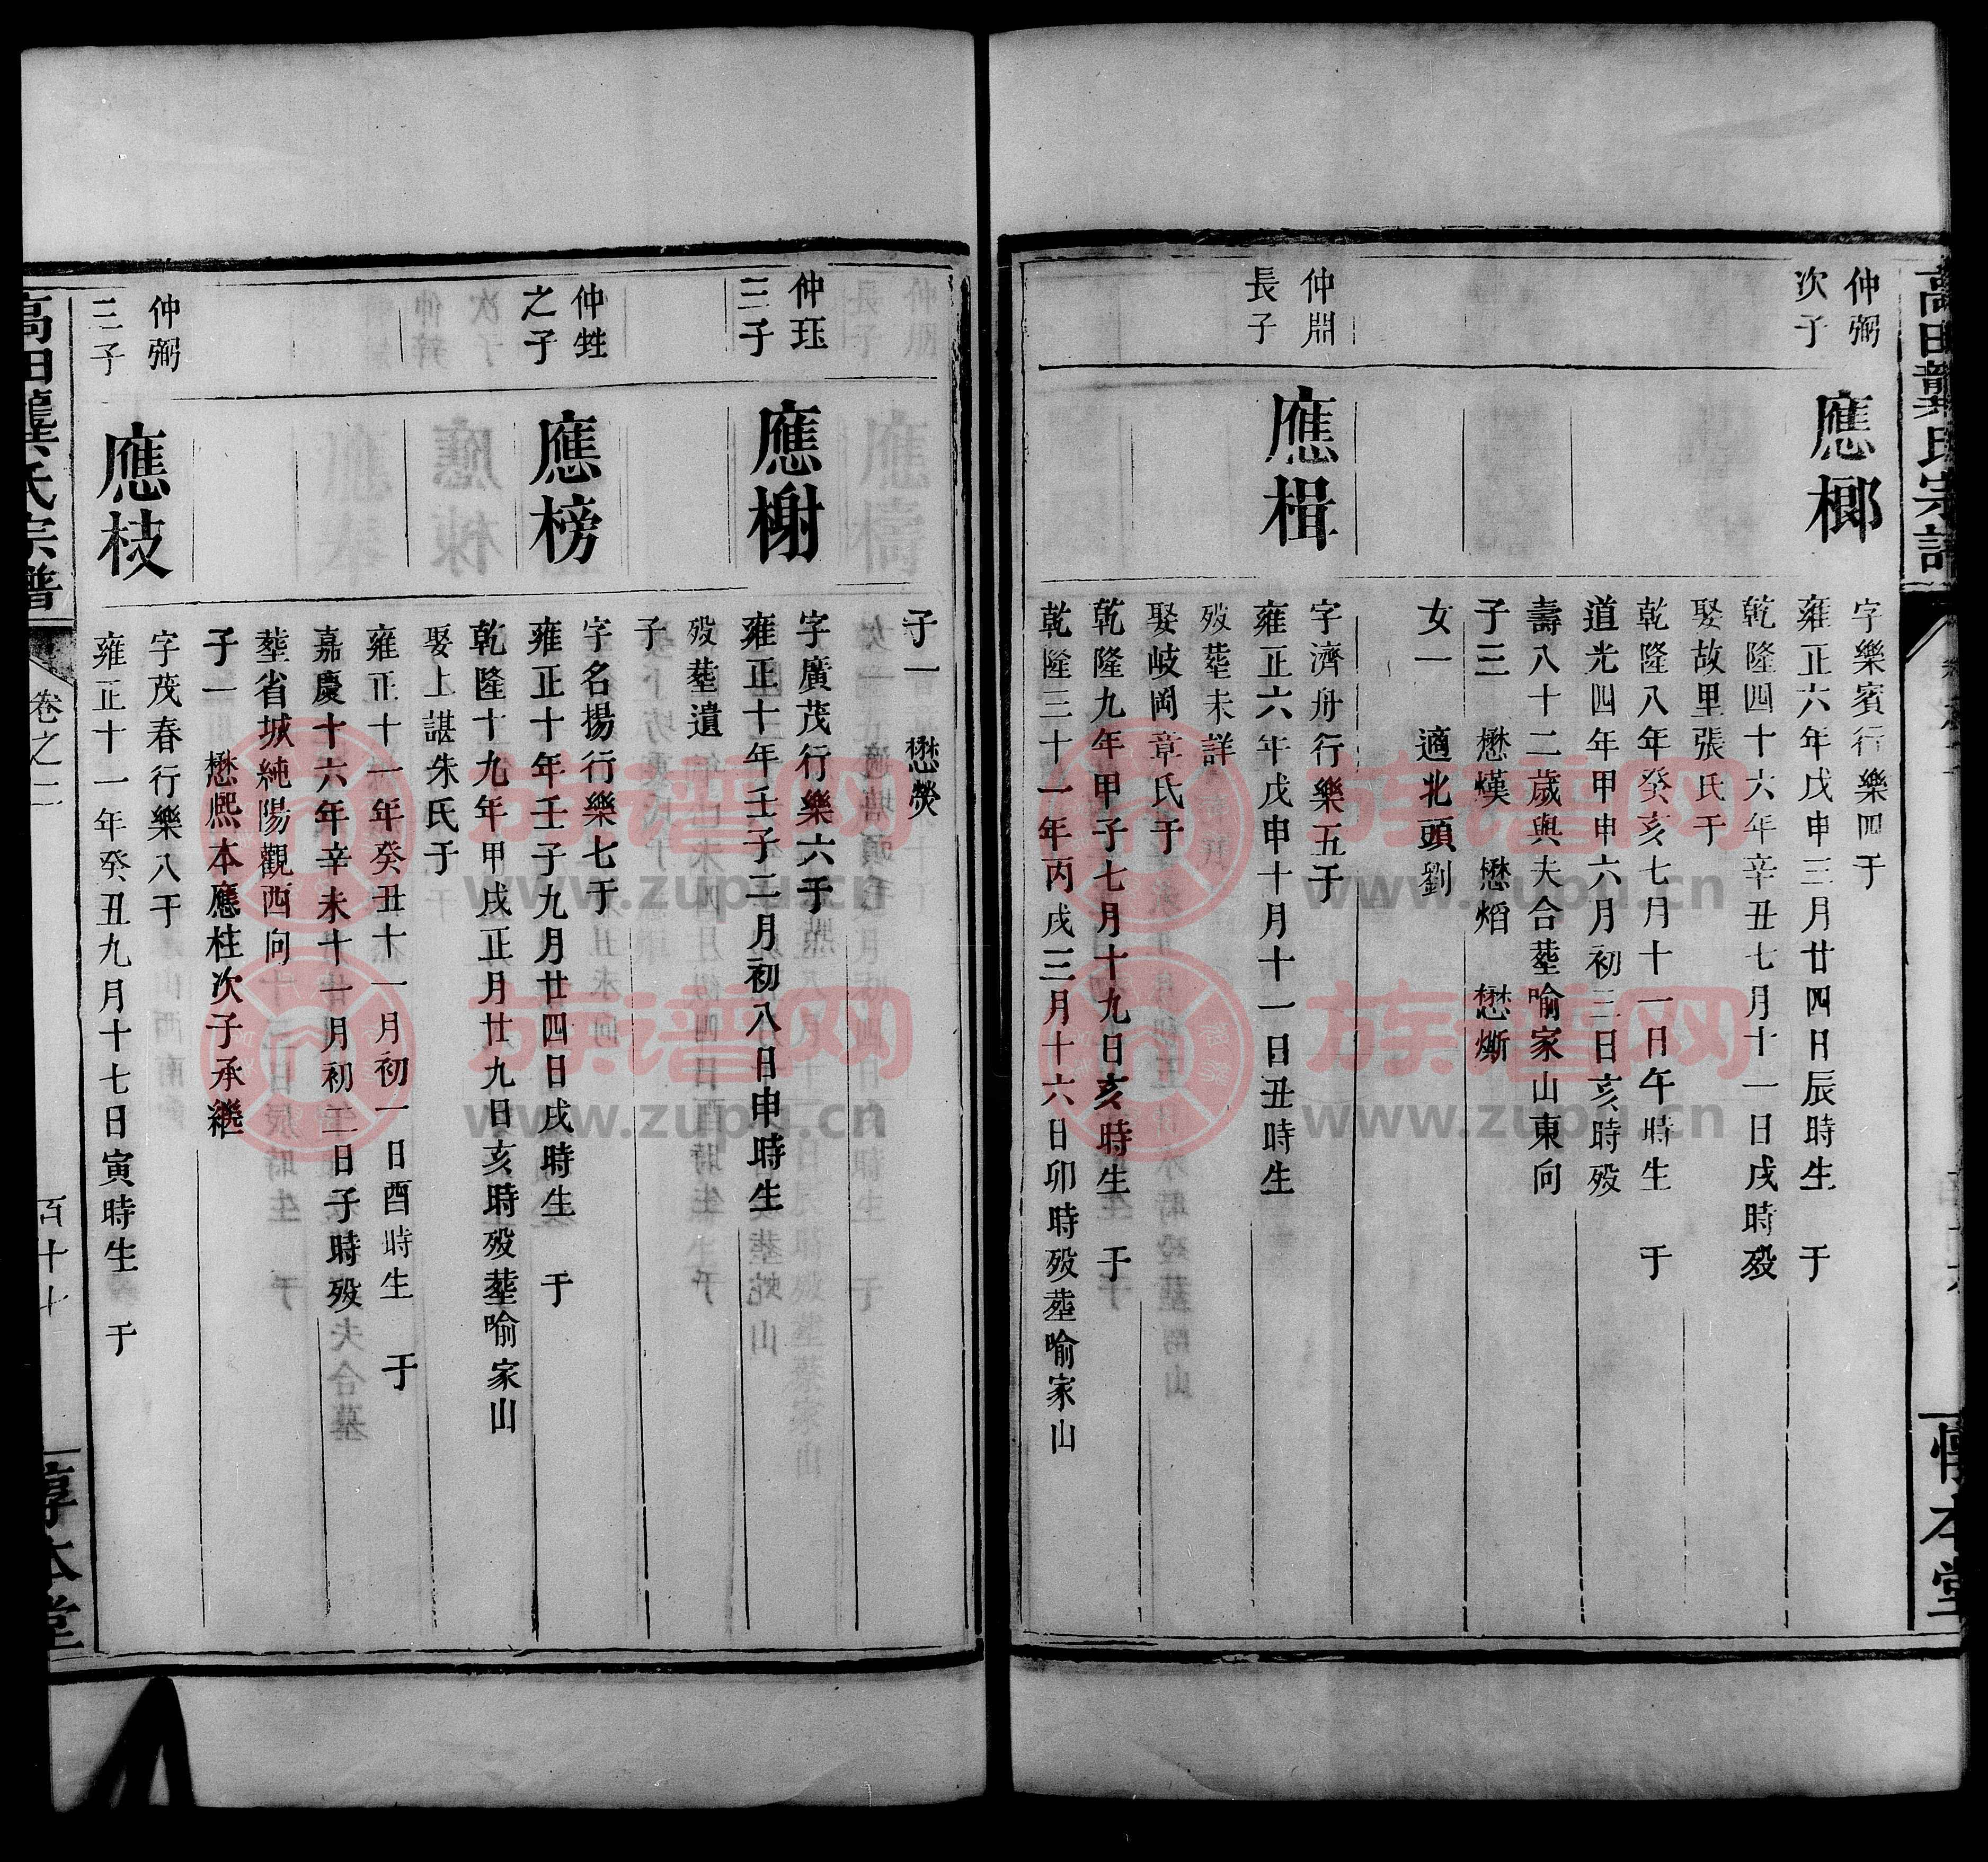 高田龔氏宗譜
惇本堂
仲弼
次子
應榔
字樂賓行樂四于
雍正六年戊申三月廿四日辰時生 于
乾隆四十六年辛丑七月十一日戌時殁
娶故里張氏于
乾隆八年癸亥七月十一日午時生 于
道光四年甲申六月初三日亥時殁
壽八十二歲與夫合塟喻家山東向
子三 懋熯 懋熖 懋燍
女一 適北頭劉
仲淵
長子
應楫
字濟舟行樂五于
雍正六年戊申十月十一日丑時生
殁塟未詳
娶岐岡章氏于
乾隆九年甲子七月十九日亥時生 于
乾隆三十一年丙戌三月十六日卯時殁塟喻家山
子一 懋熒
仲珏
三子
應榭
字廣茂行樂六于
雍正十年壬子二月初八日申時生
殁塟遺
子
仲甡
之子
應榜
字名揚行樂七于
雍正十年壬子九月廿四日戌時生 于
乾隆十九年甲戌正月廿九日亥時殁塟喻家山
娶上諶朱氏于
雍正十一年癸丑十一月初一日酉時生 于
嘉慶十六年辛未十一月初二日子時殁
塟省城純陽觀西向
子一 懋熙本應柱次子承繼
仲弼
三子
應枝
字茂春行樂八于
雍正十一年癸丑九月十七日寅時生 于
高田龔氏宗譜
卷之二
百十七
惇本堂
族谱网
www.zupu.cn
族谱网
www.zupu.cn
族谱网
www.zupu.cn
族谱网
www.zupu.cn